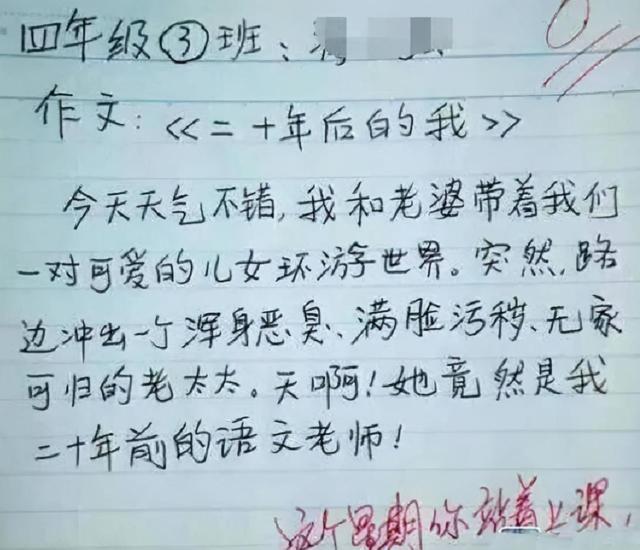 四年级③班:
作文:《二十年后的我》
今天天气不错,我和老婆带着我们
一对可爱的儿女环游世界。突然,路
边冲出一个浑身恶臭、满脸污秽、无家
可归的老太太。天啊!她竟然是我
二十年前的语文老师!
0
这个星期你站着上课,